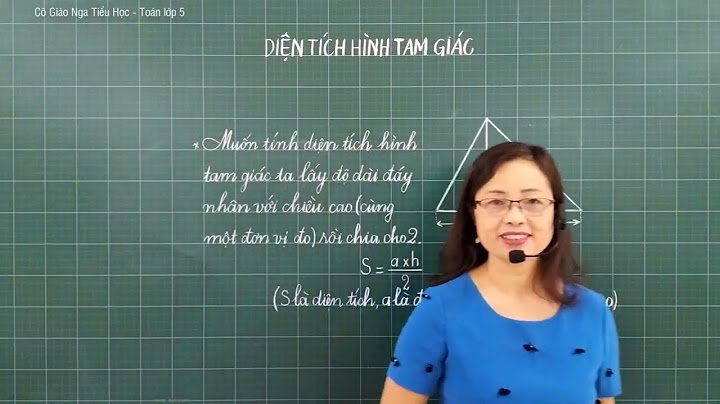 Cô Giáo Nga Tiểu Học - Toán lớp 5
DIỆN TÍCH HÌNH TAM GIÁC
* Muốn tính diện tích hình
tam giác ta lấy độ dài đáy
nhân với chiều cao (cùng
một đơn vị đo) rồi chia cho 2.
S = a x h / 2
(S là diện tích, a là đ o)